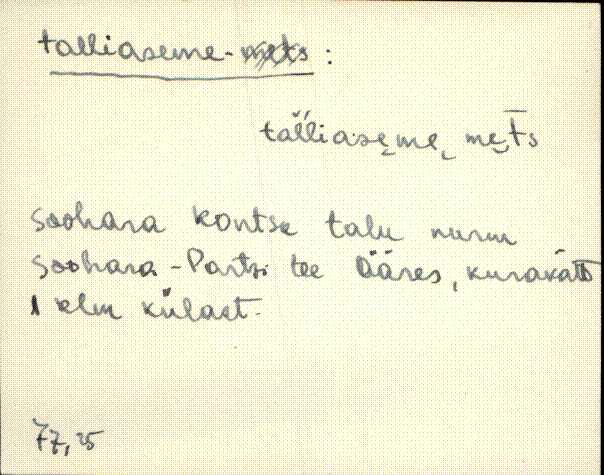 talliaseme-mets :
tal̆l̆iase̮me̮ met̄s
Soohara kontse talu nurm
Soohara-Partsi tee ääres, kurakätt
1 klm külast.
77, 25